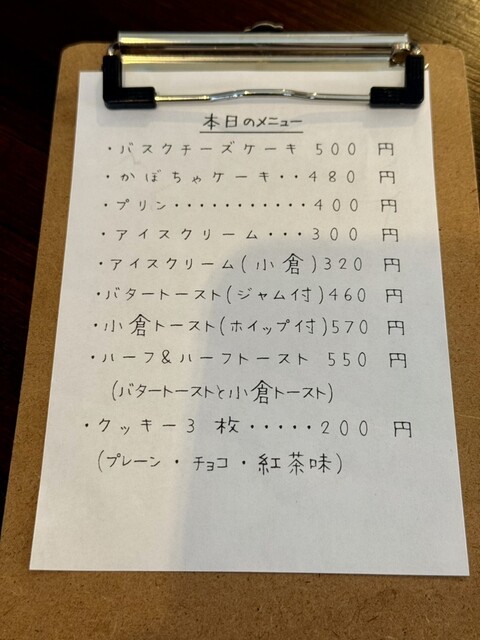 本日のメニュー
・バスクチーズケーキ 500 円
・かぼちゃケーキ‥480 円
・プリン・・・・・・・・・・・400 円
・アイスクリーム・・・300 円
・アイスクリーム(小倉)320 円
・バタートースト(ジャム付)460 円
・小倉トースト(ホイップ付)570 円
・ハーフ&ハーフトースト 550 円
(バタートーストと小倉トースト)
・クッキー3 枚・・・・・200 円
(プレーン・チョコ・紅茶味)